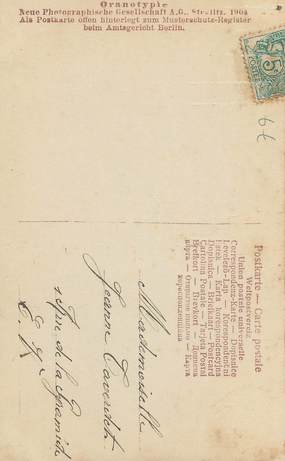 Oranotypie
Neue Photographische Gesellschaft A.G., Steglitz, 1904
Als Postkarte offen hinterlegt zum Musterschutz-Register
beim Amtsgericht Berlin.
5
6€
Postkarte — Carte postale
Weltpostverein
Union postale universelle
Correspondenz-Karte — Dopisnice
Levelező-Lap — Korespondentní
lístek — Karta korespondencyjna
Dopisnica — Briefkaart — Postcard
Cartolina Postale — Tarjeta Postal
Brefkort — Brevkort — Дописна
карта — Открытое письмо — Карта
корреспонденціина
Mademoiselle
Jeanne
de la Pyramide